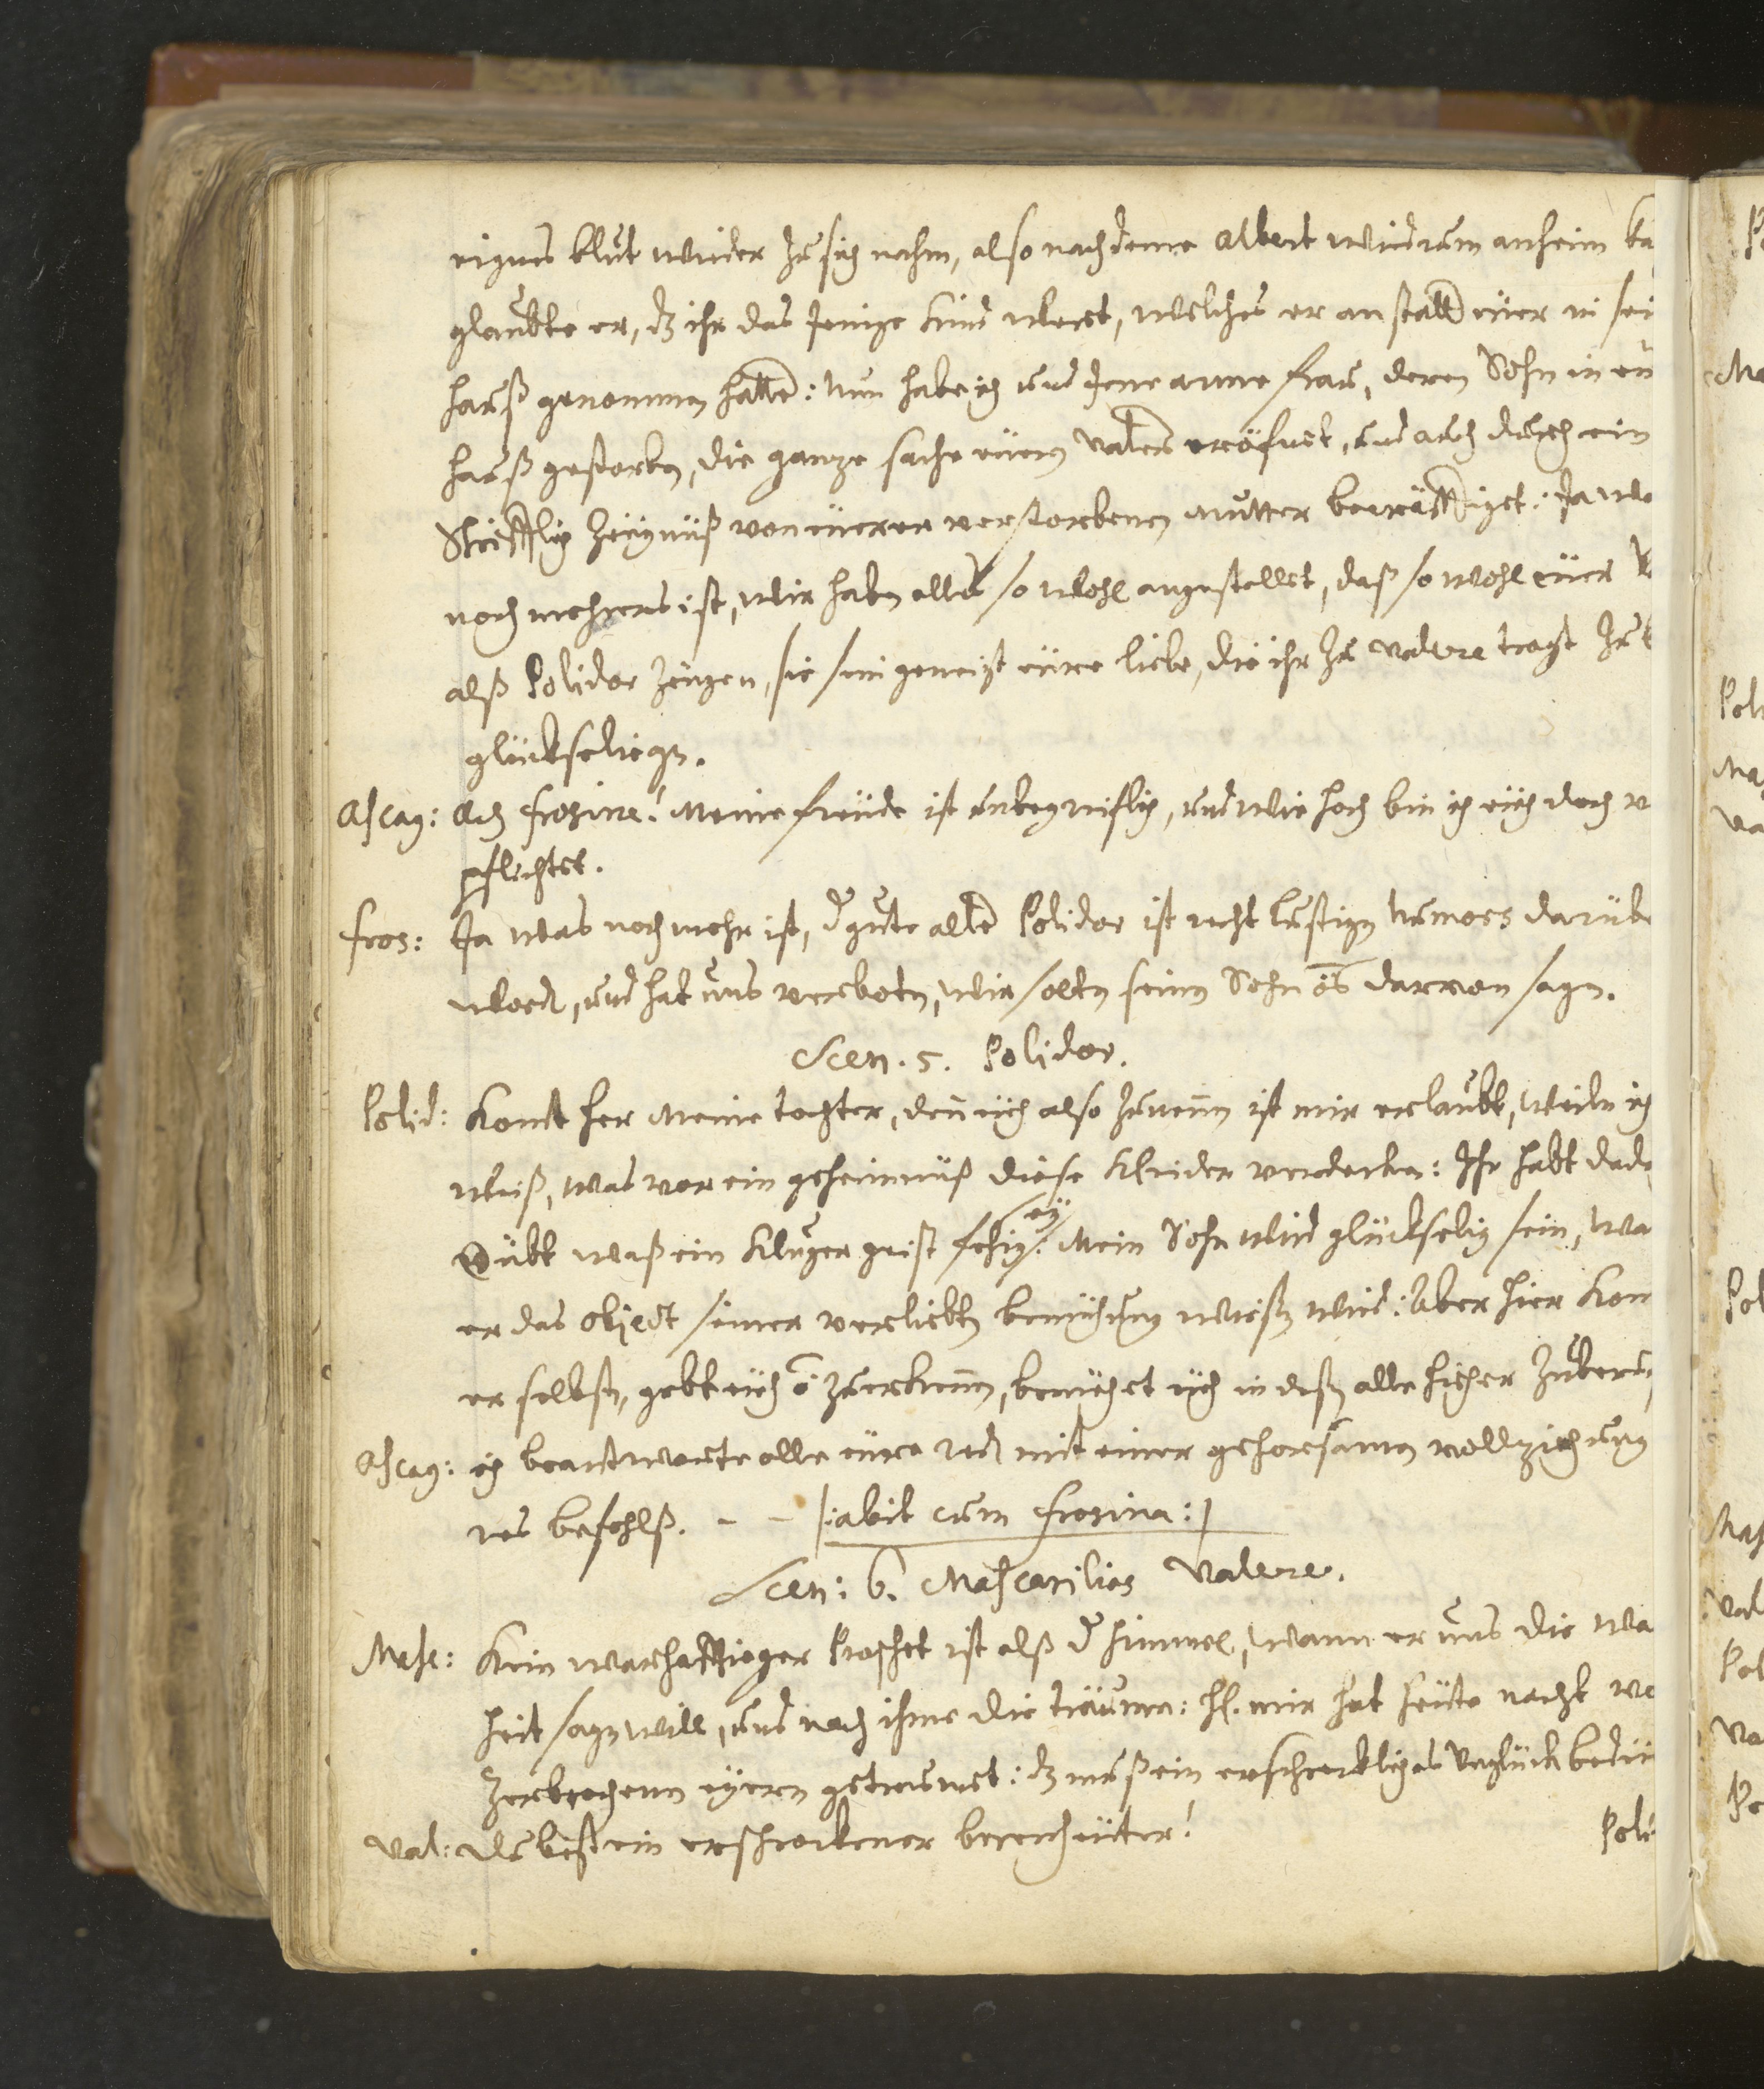 eignes blut wieder zu sich nahm, also nachdeme Albert widrum anheim ka
glaubte er, dz ihr das jenige kind weret, welches er anstatt eüer in sei
hauß genommen hatte: Nun habe ich und jene arme frau, deren Sohn in eü
hauß gestorben, die ganze sache eüern Vatter eröfnet, und auch durch ein
Schrifftlich Zeügnüß von eüerer verstorbenen Mutter becräfftiget: Ja wa
noch mehrers ist, wir haben alles so wohl angestellet, daß so wohl eüer V
alß Polidor zeügen, sie sein geneigt eüere liebe, die ihr zu Valere tragt zu b
glückseliegen.
Ascag: Ach frosine! Meine freüde ist unbegreiflich, und wie hoch bin ich eüch doch v
pflichtet.
fros: Ja was noch mehr ist, dr gute alte Polidor ist recht lustigen humors darübe
word, und hat uns verboten, wir solten seinen Sohn darvon sagen.
Scen. 5. Polidor.
Polid: Komt her Meine tochter, den eüch also zunennen ist mir erlaubt, weilen ich
weiß, was vor ein geheimnuß diese Kleider verdecken: Ihr habt dadu
übt waß ein Kluger geist fehig seÿ: Mein Sohn wird glückselig sein, wa
er das object seiner verliebten bemühung wissen wird: Aber hier Kom
er selbsten, gebt eüch zuerkennen, bemühet eüch indessen alle hieher zuberu
Ascag: ich beantworte alle eüre red mit einer gehorsamen vollziehung
res befehls. - - |: abit cum frosina :|
Scen: 6. Mascarilias Valere.
Masc: Kein warhafftieger Prophet ist alß dr himmel, wann er uns die wa
heit sagen will, und nach ihme die träume: H. mir hat heüte nacht vo
zerbrochenen eÿeren getraumet: dz muß ein erschrecklichs Unglück bedeü
Val: du bist ein erschrockener berenheüter!
Poli